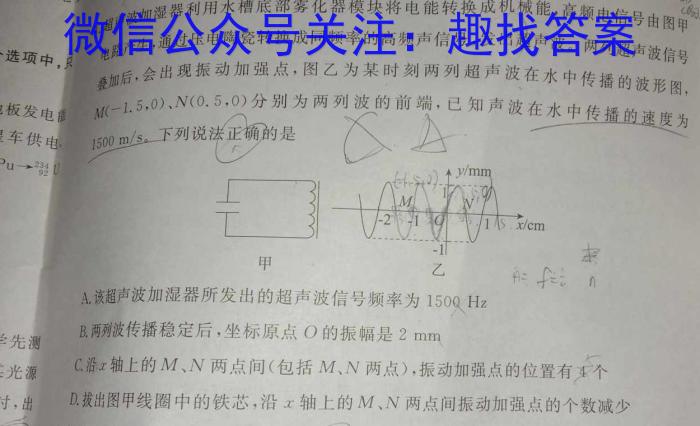 超声波加湿器利用水槽底部雾化器模块将电能转换成机械能,高频电信号由图甲
微信公众号关注:趣找答案
叠加后,会出现振动加强点,图乙为某时刻两列超声波在水中传播的波形图,
M(-1.5,0)、N(0.5,0)分别为两列波的前端,已知声波在水中传播的速度为
1500 m/s。下列说法正确的是
个选项中,只
电板发电
星车供电
Pu→ 234 92 U
y/mm
1
M
N
-2
-1
O
1
x/cm
-1
甲
乙
A.该超声波加湿器所发出的超声波信号频率为 1500 Hz
B.两列波传播稳定后,坐标原点 O 的振幅是 2 mm
C.沿 x 轴上的 M、N 两点间(包括 M、N 两点),振动加强点的位置有 个
D.拔出图甲线圈中的铁芯,沿 x 轴上的 M、N 两点间振动加强点的个数减少
学先测
光源
时,出